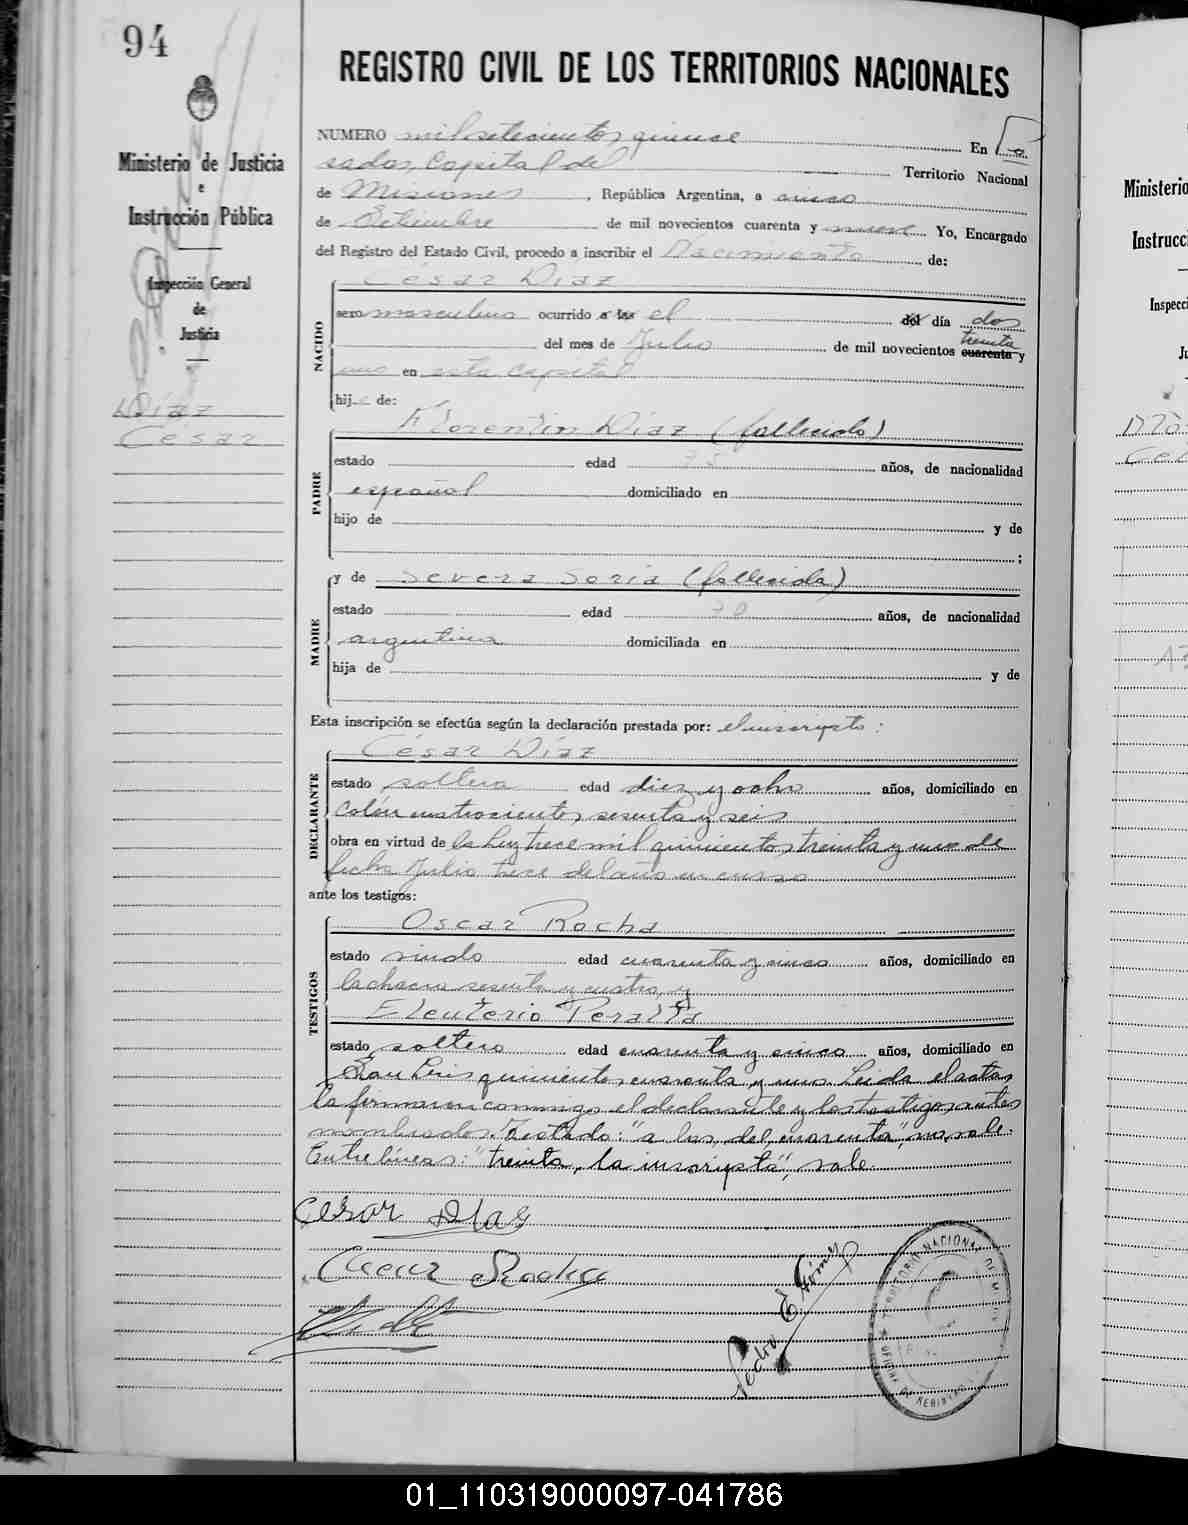 94
REGISTRO CIVIL DE LOS TERRITORIOS NACIONALES
Ministerio de Justicia
e
Instrucción Pública
Inspección General
de
Justicia
Díaz
César
NUMERO mil setecientos quince En Po
sadas, Capital del Territorio Nacional
de Misiones, República Argentina, a cinco
de Setiembre de mil novecientos cuarenta y nueve Yo, Encargado
del Registro del Estado Civil, procedo a inscribir el Nacimiento de:
César Díaz
NACIDO
sexo masculino ocurrido a las el del día dos
treinta
del mes de Julio de mil novecientos cuarenta y
uno en esta Capital
hijo de:
Florentin Díaz (fallecido)
PADRE
estado edad años, de nacionalidad
español domiciliado en
hijo de y de
;
MADRE
y de Severa Soria (fallecida)
estado edad años, de nacionalidad
argentina domiciliada en
hija de y de
Esta inscripción se efectúa según la declaración prestada por: el inscripto:
César Díaz
DECLARANTE
estado soltero edad diez y ocho años, domiciliado en
Colón cuatrocientos sesenta y seis
obra en virtud de la Ley trece mil quinientos treinta y uno de
fecha Julio trece del año en curso
ante los testigos:
Oscar Rocha
TESTIGOS
estado viudo edad cuarenta y cinco años, domiciliado en
la chacra sesenta y cuatro, y
Eleuterio Peralta
estado soltero edad cuarenta y cinco años, domiciliado en
San Luis quinientos cuarenta y uno. Leida el acta,
la firmaron conmigo el declarante y los testigos antes
nombrados. Testado: "a las, del, cuarenta", no vale.
Entre lineas: "treinta, la inscripta", vale.
Cesar Diaz
Oscar Rocha
Pedro E. Gómez
TERRITORIO NACIONAL DE MISIONES
OFICINA DE REGISTRO
Ministerio
Instrucc
Inspecci
Ju
01_110319000097-041786